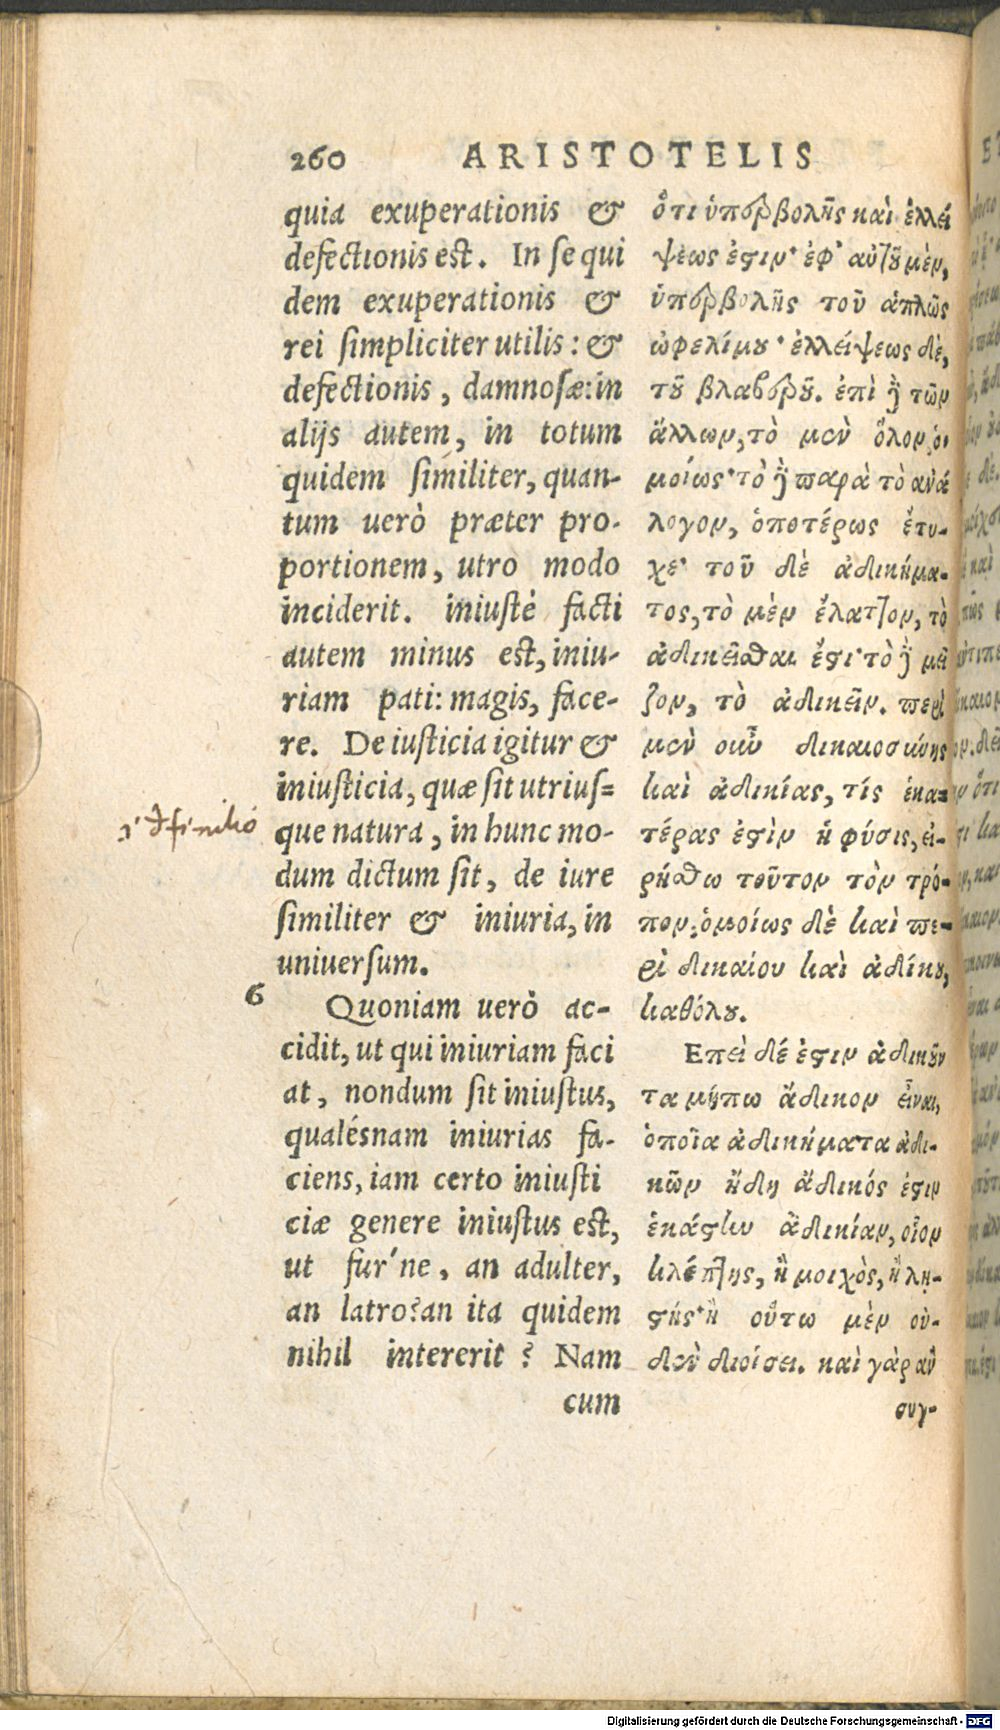 260 ARISTOTELIS
quia exuperationis &
defectionis est. In se qui
dem exuperationis &
rei simpliciter utilis: &
defectionis, damnosæ: in
alijs autem, in totum
quidem similiter, quan-
tum uerò præter pro-
portionem, utro modo
inciderit. iniustè facti
autem minus est, iniu-
riam pati: magis, face-
re. De iusticia igitur &
iniusticia, quæ sit utrius=
que natura, in hunc mo-
dum dictum sit, de iure
similiter & iniuria, in
uniuersum.
6
Quoniam uerò ac-
cidit, ut qui iniuriam faci
at, nondum sit iniustus,
qualésnam iniurias fa-
ciens, iam certo iniusti
ciæ genere iniustus est,
ut fur'ne, an adulter,
an latro? an ita quidem
nihil intererit? Nam
cum
ὅτι ὑπερβολῆς καὶ ἐλλεί
ψεως ἐστιν· ἐφ' αὑτοῦ μὲν,
ὑπερβολῆς τοῦ ἁπλῶς
ὠφελίμου· ἐλλείψεως δὲ,
τοῦ βλαβεροῦ. ἐπὶ δὲ τῶν
ἄλλων, τὸ μὲν ὅλον, ὁ-
μοίως· τὸ δὲ παρὰ τὸ ἀνά
λογον, ὁποτέρως ἔτυ-
χε· τοῦ δὲ ἀδικήμα-
τος, τὸ μὲν ἔλαττον, τὸ
ἀδικεῖσθαι ἔστι· τὸ δὲ μεῖ
ζον, τὸ ἀδικεῖν. περὶ
μὲν οὖν δικαιοσύνης
καὶ ἀδικίας, τίς ἑκα-
τέρας ἐστὶν ἡ φύσις, εἰ-
ρήσθω τοῦτον τὸν τρό-
πον: ὁμοίως δὲ καὶ πε-
ρὶ δικαίου καὶ ἀδίκου,
καθόλου.
Επεὶ δέ ἐστιν ἀδικοῦν
τα μήπω ἄδικον εἶναι,
ὁποῖα ἀδικήματα ἀδι-
κῶν ἤδη ἄδικός ἐστιν
ἑκάστην ἀδικίαν, οἷον
κλέπτης, ἢ μοιχὸς, ἢ λῃ-
στής· ἢ οὕτω μὲν οὐ-
δὲν διοίσει. καὶ γὰρ ἂν
συγ-
Digitalisierung gefördert durch die Deutsche Forschungsgemeinschaft - DFG